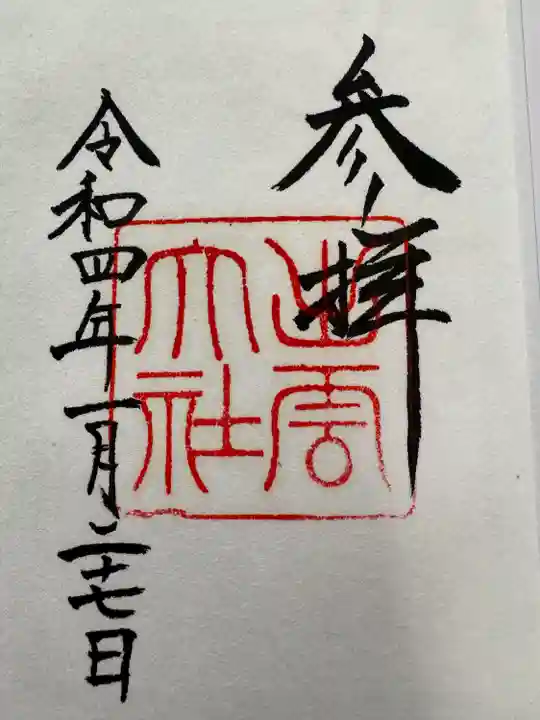 参拝
出雲
大社
令和四年一月二十七日